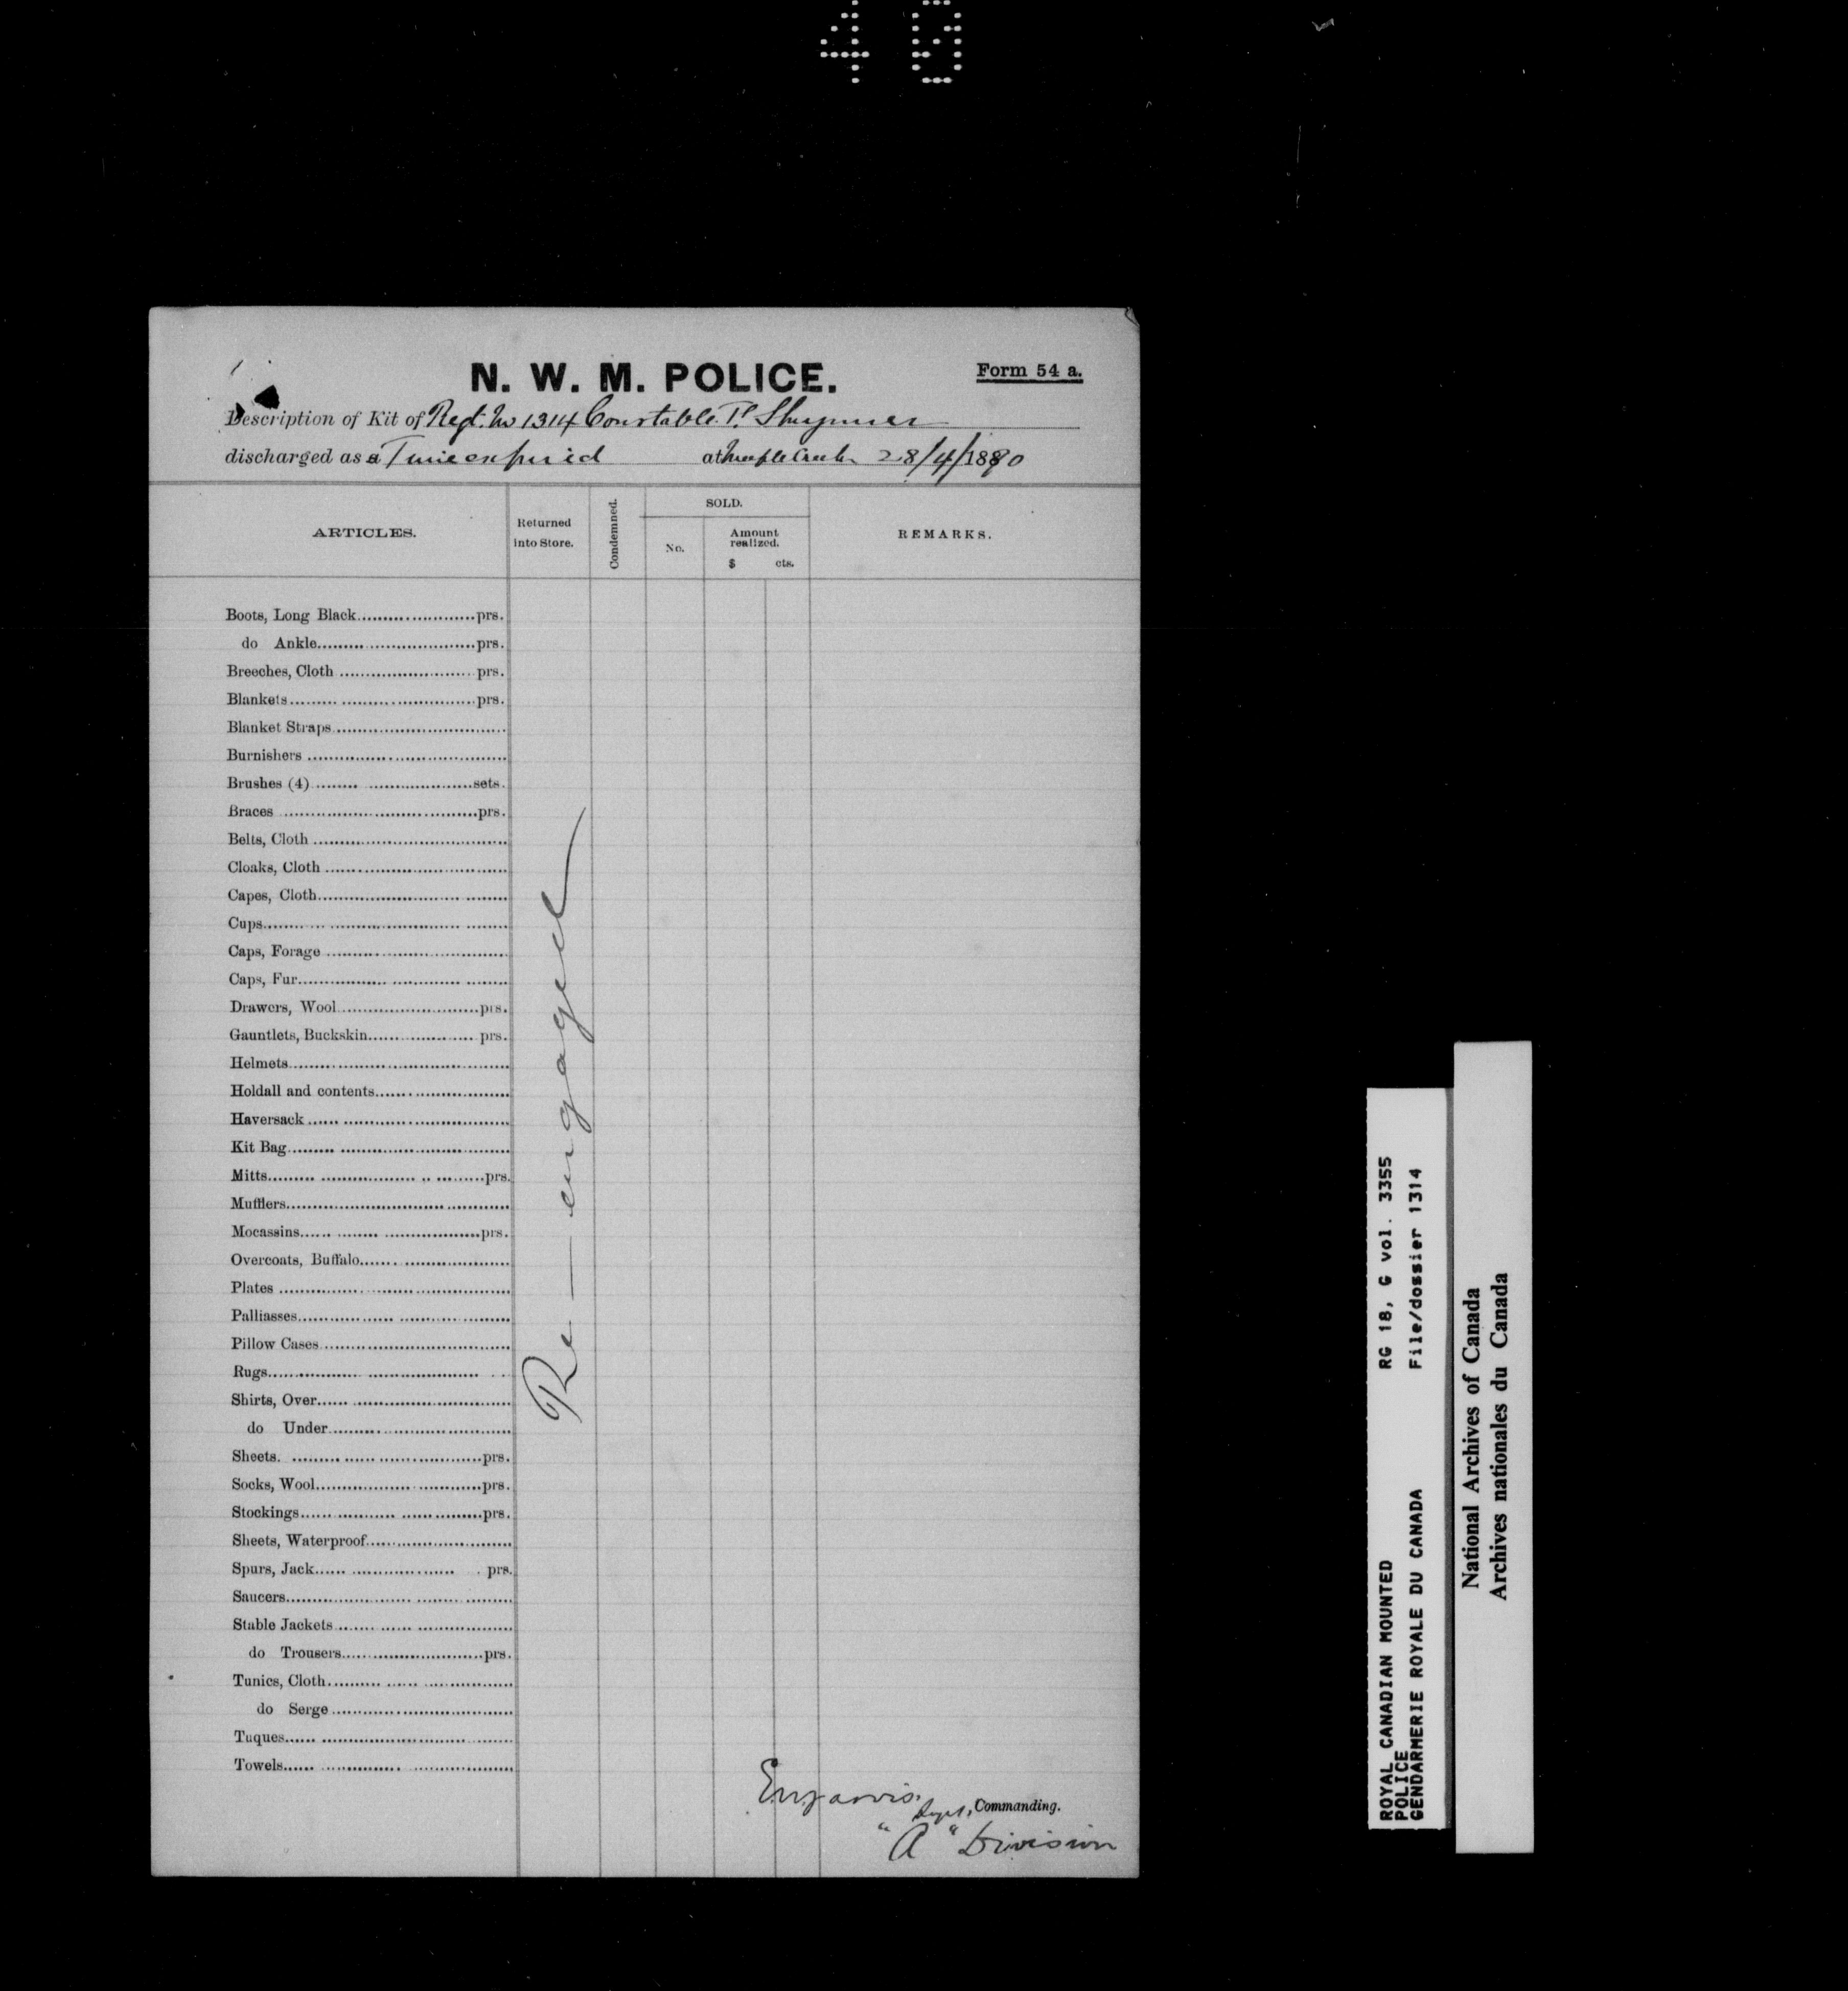 40
N. W. M. POLICE.
Form 54 a.
Description of Kit of Regt. No 1314 Constable.
discharged as a Time expired at Maple Creek 28/4/1890
ARTICLES.
Returned into Store.
Condemned.
SOLD.
No.
Amount realized.
$ cts.
REMARKS.
Boots, Long Black prs.
do Ankle prs.
Breeches, Cloth prs.
Blankets prs.
Blanket Straps
Burnishers
Brushes (4) sets.
Braces prs.
Belts, Cloth
Cloaks, Cloth
Capes, Cloth
Cups
Caps, Forage
Caps, Fur
Drawers, Wool prs.
Gauntlets, Buckskin prs.
Helmets
Holdall and contents
Haversack
Kit Bag
Mitts prs.
Mufflers
Mocassins prs.
Overcoats, Buffalo
Plates
Palliasses
Pillow Cases
Rugs
Shirts, Over
do Under
Sheets. prs.
Socks, Wool prs.
Stockings prs.
Sheets, Waterproof
Spurs, Jack prs.
Saucers
Stable Jackets
do Trousers prs.
Tunics, Cloth
do Serge
Tuques
Towels
Re-engaged
Jarvis.
Supt, Commanding.
"A" Division
ROYAL CANADIAN MOUNTED POLICE
GENDARMERIE ROYALE DU CANADA
RG 18, G vol. 3355
File/dossier 1314
National Archives of Canada
Archives nationales du Canada